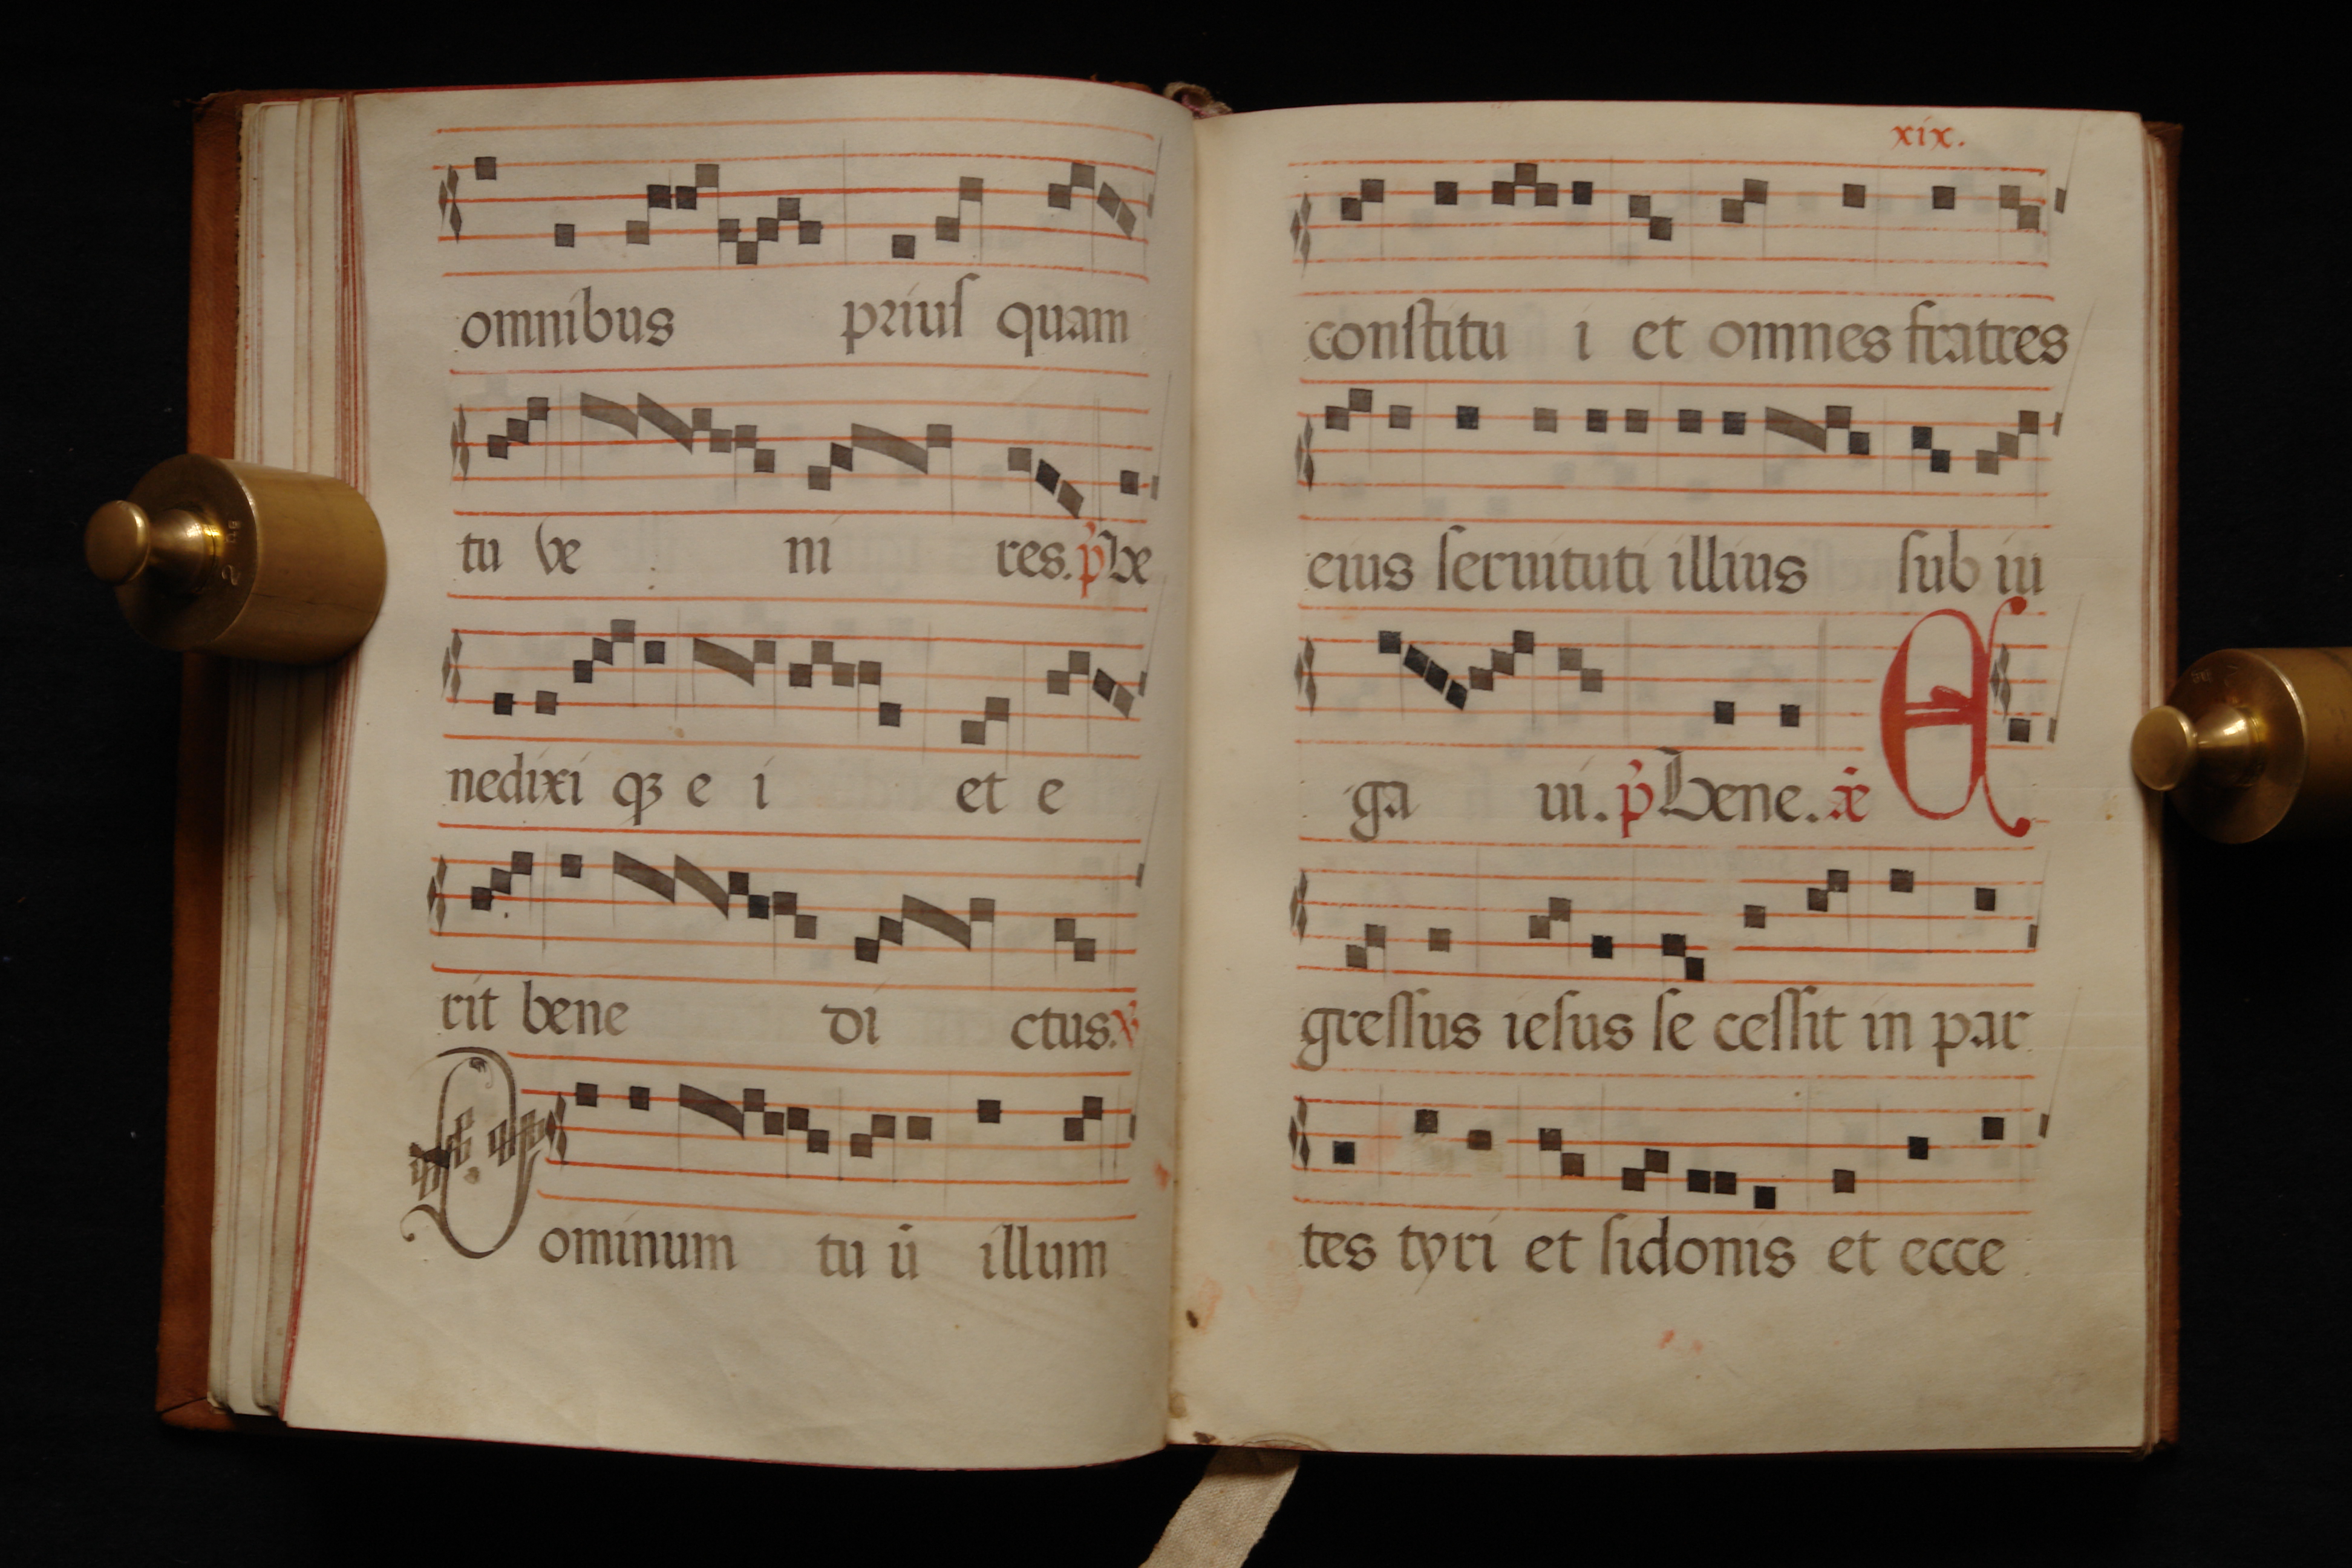 omnibus priuſ quam
tu ve ni res. p̄ Be
nedixi qꝫ e i et e
rit bene di ctus. ℣
Dominum tu ū illum
xix.
conſtitu i et omnes fratres
eius ſeruituti illius ſub iu
ga ui. p̄ Bene. ǣ E
greſſus ieſus ſe ceſſit in par
tes tyri et ſidonis et ecce